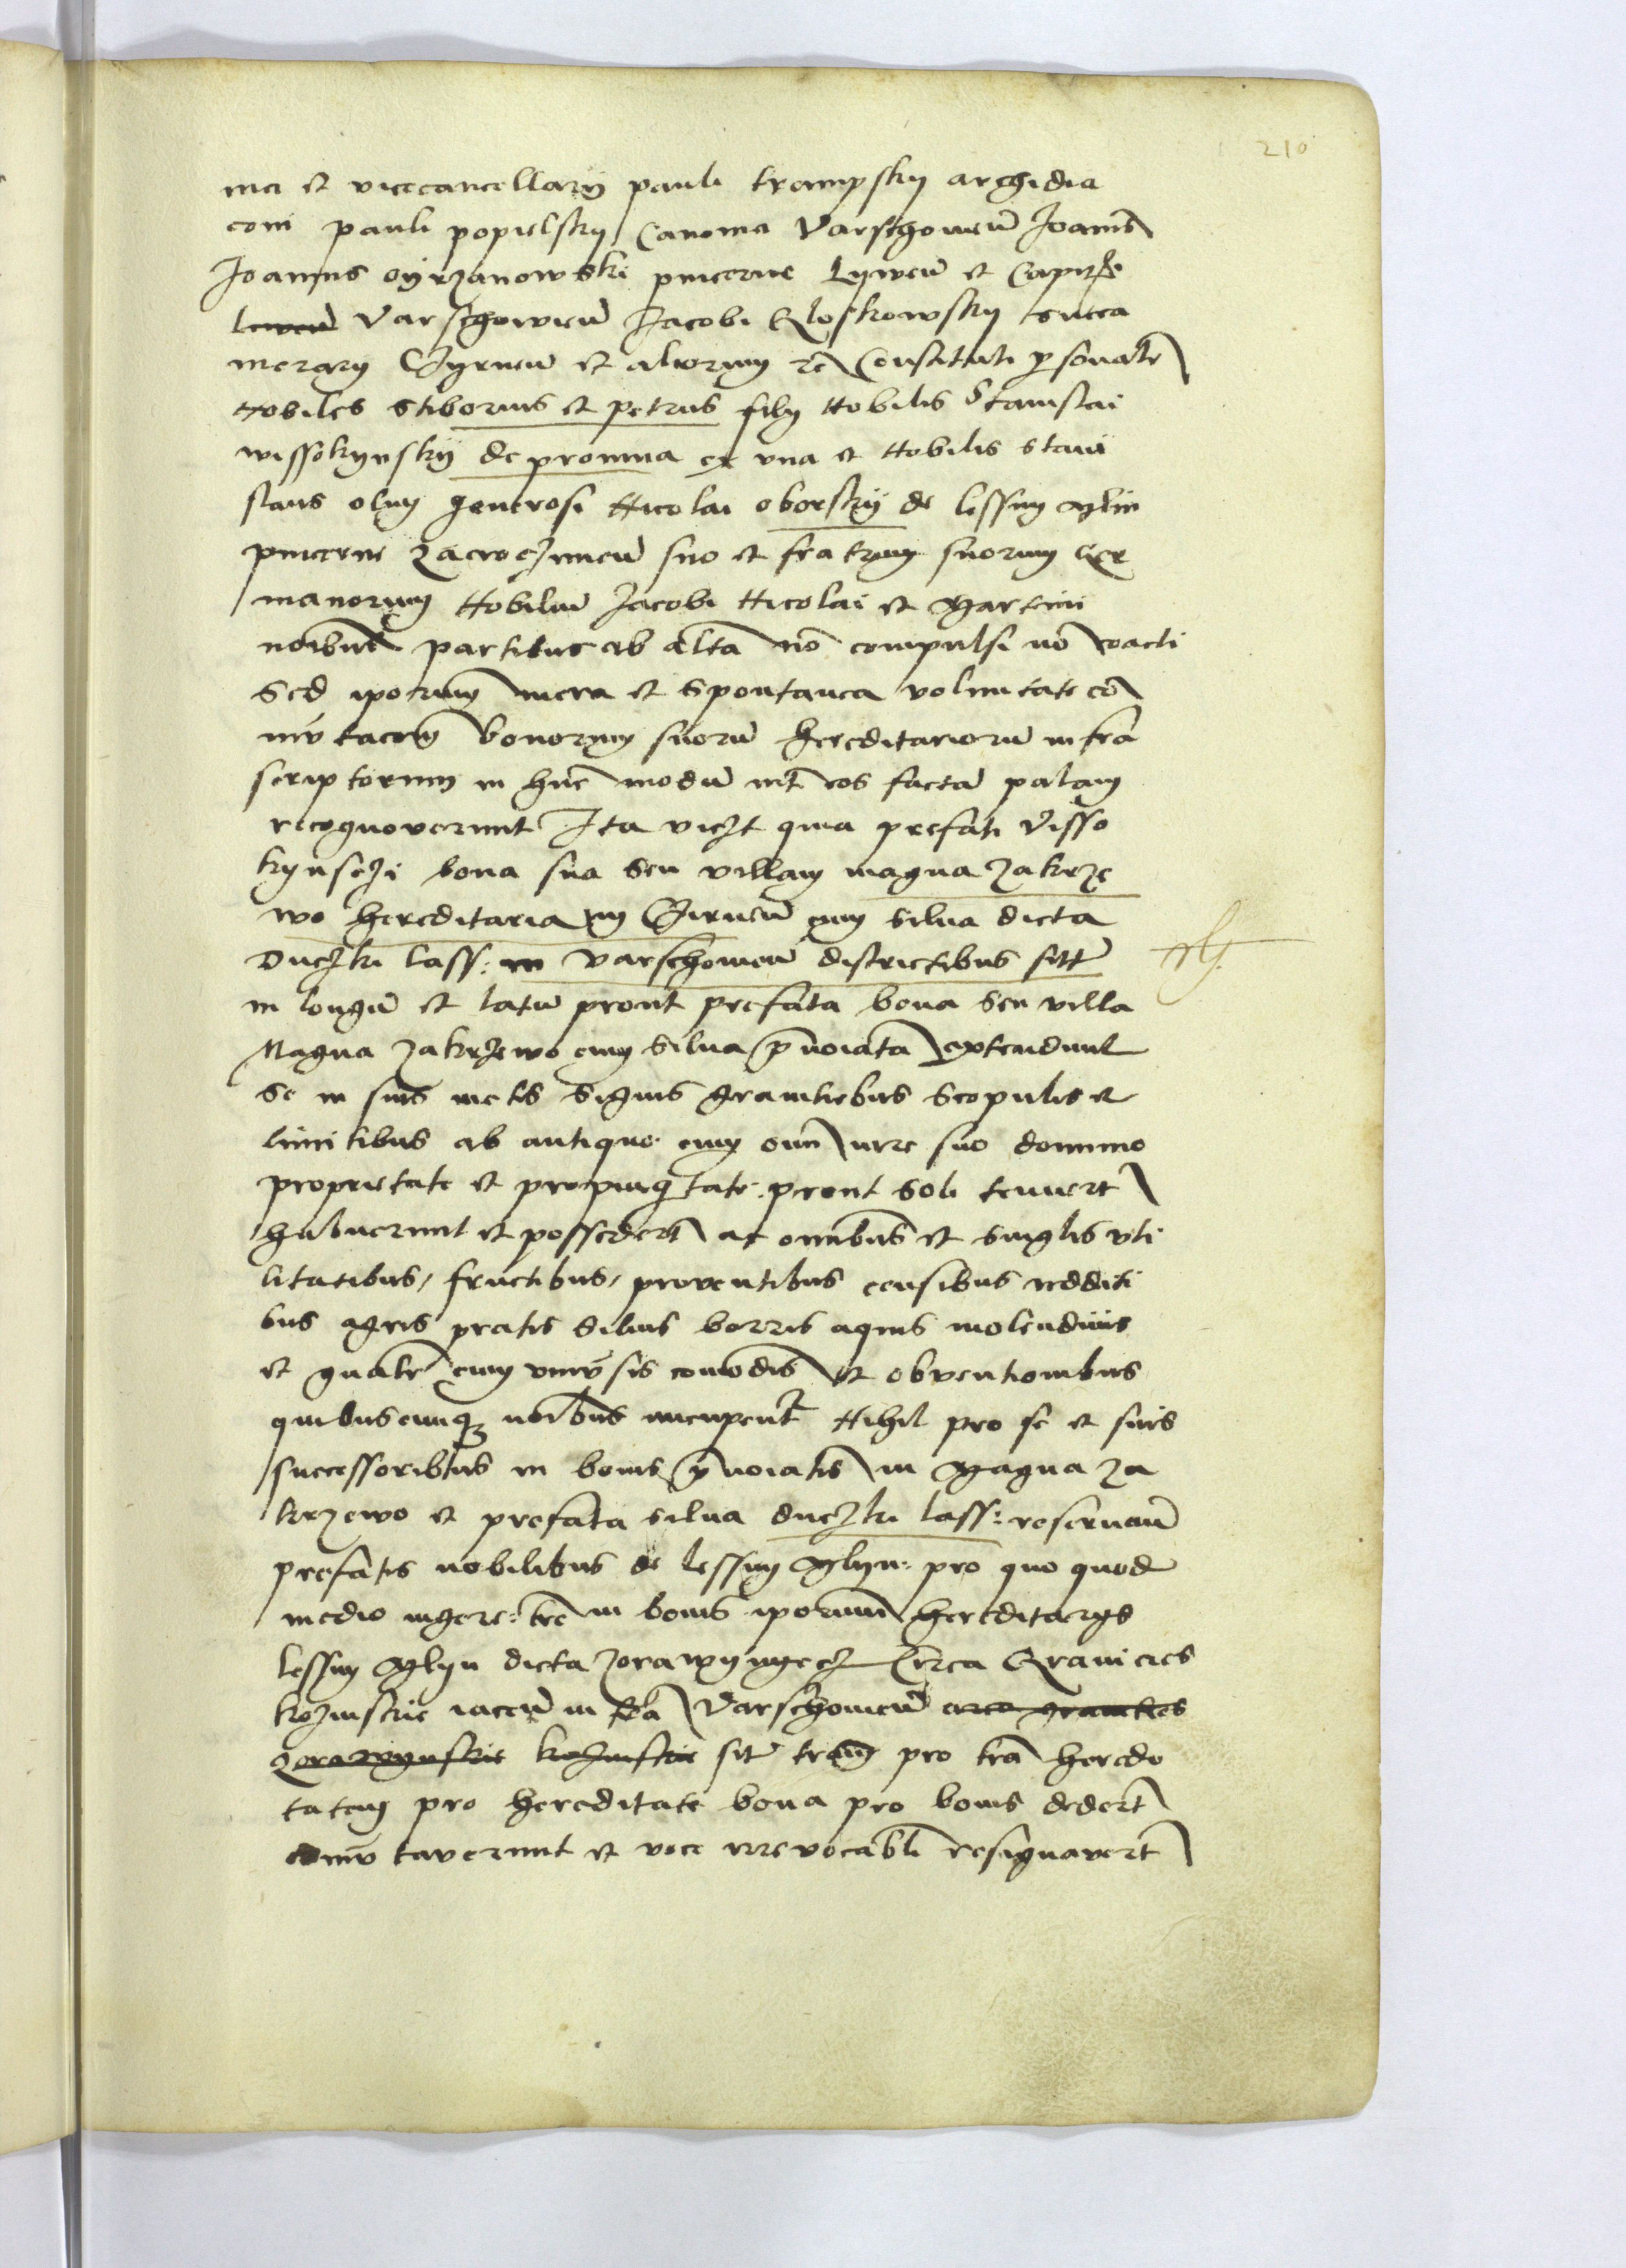 210
ma et vicecancellarij pauli trampsky archidia
coni pauli popielsky Canonici Varschovien̄ Joanīs
Joannis oyrzanowski pincerne Lywien̄ et Capit
Varschovien̄ Jacobi Gloskowsky succa
merarij Czyrnen̄ et aliorum rē Constituti psonalr̄
Nobiles Stiborius et petrus filij Nobilis Stanislai
wissokynsky de promna ex vna et Nobilis stani
slaus olim generosi Nicolai oborsky de lessny mlin
pincerne Zacroczimen̄ suo et fratrum suorum ger
manorum Nobiliū Jacobi Nicolai et Martini
noībus partibus ab altā nō compulsi nō coacti
Sed ip̄orum mera et spontanea voluntate cō
mutacōm bonorum suorū hereditariorū infra
scriptorum in hūc modū int̄ eos factā palam
recognoverunt Ita viczt quia prefati Visso
kynsczi bona sua seu villam magna zakrze
wo hereditaria in Czirnen̄ cum silva dicta
Duczki lass: in varschovien̄ districtibus sitt̄
in longū et latū prout prefata bona seu villa
Magna zakrzewo cum silva p̄noiāta extendunt
se in suis metis signis graniciebus scopulis et
limitibus ab antiquo cum oīm iurre suo dominio
proprietate et propinq̄tate prout soli tenuert̄
habuerunt et possedert̄ ac omībus et singlis vti
litatibus, fructibus, proventibus censibus redditi
bus agris pratis silvis borris aquis molendinis
et gnalr̄ cum vniv̄sis comodis et obventionibus
quibuscunq3 noībus nuncupent̄ Nihil pro se et suis
successoribus in bonis p̄noiatis in Magna za
krzewo et prefata silva duczki lass: reservan̄
prefatis nobilibus de lessny mlyn: pro quo quod
medio ingere: trē in bonis ip̄orum hereditarijs
lessny mlyn dicta zorawynyecz Circa Granicies
kozinskie iacen̄ in trā Varschovien̄ circa granicies
zorawynskie kozinskie sit̄ terrām pro trā heredi
tatem pro hereditate bona pro bonis dedert̄
comutaverunt et voce irrevocabli resignavert̄